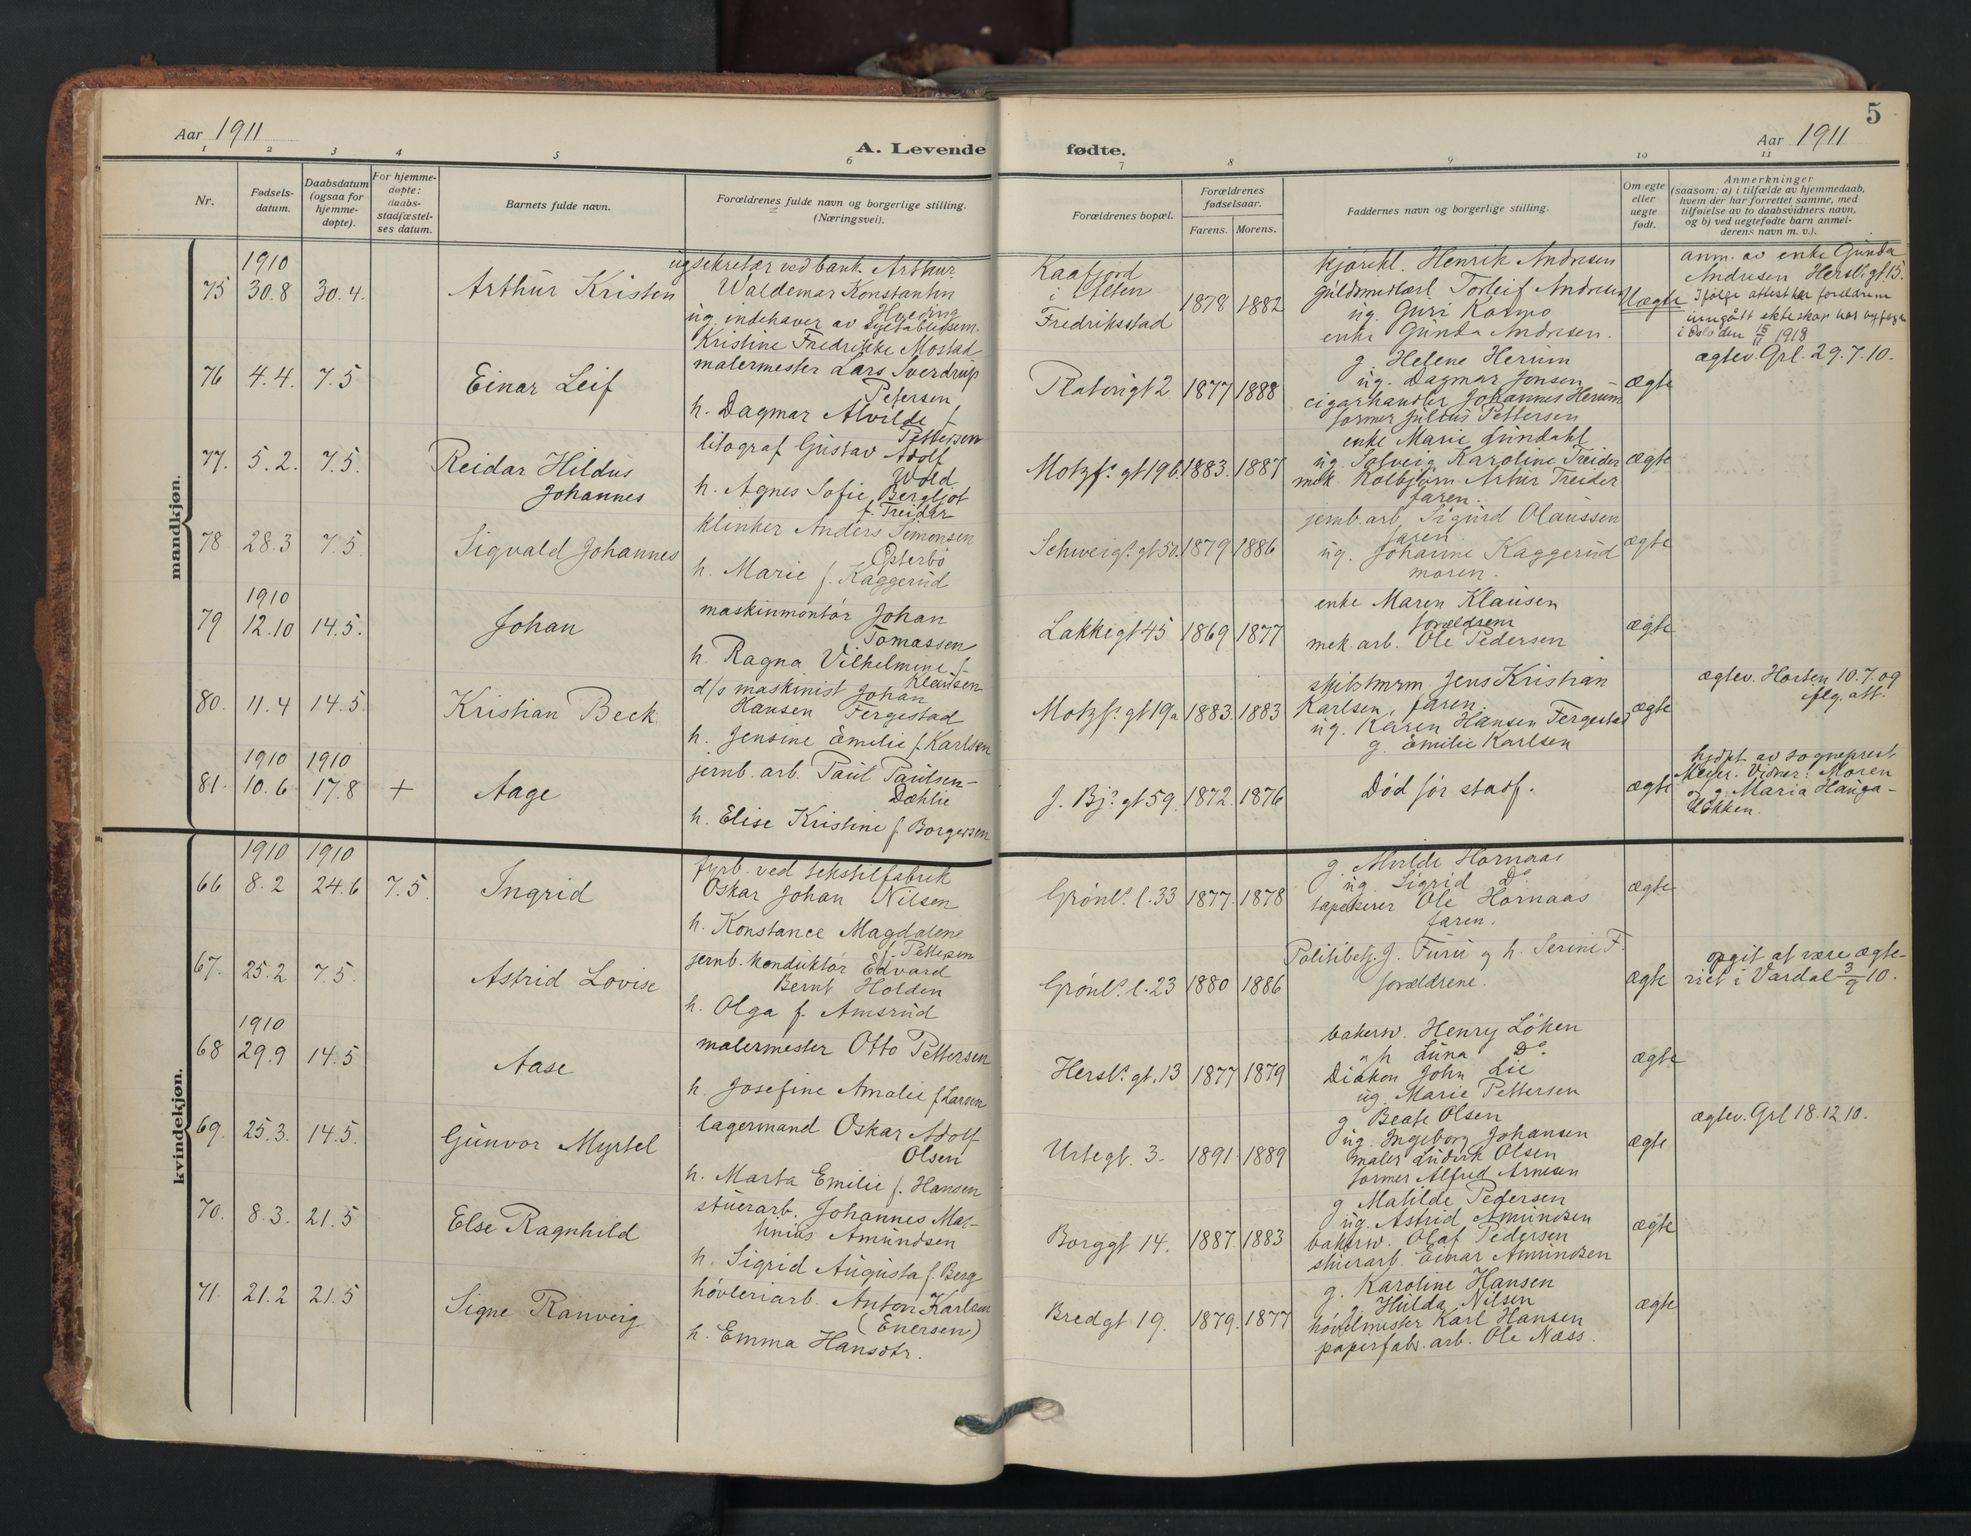 5
Aar 1911
A. Levende fødte.
Aar 1911
1 2 3 4 5 6 7 8 9 10 11
Nr.
Fødsels-
datum.
Daabsdatum
(ogsaa for
hjemme-
døpte).
For hjemme-
døpte:
daabs-
stadfæstel-
ses datum.
Barnets fulde navn.
Forældrenes fulde navn og borgerlige stilling.
(Næringsvei).
Forældrenes bopæl.
Forældrenes
fødselsaar.
Farens. Morens.
Faddernes navn og borgerlige stilling.
Om egte
eller
uegte
født.
Anmerkninger
(saasom: a) i tilfælde av hjemmedaab,
hvem der har forrettet samme, med
tilføielse av to daabsvidners navn,
og b) ved uegtefødte barn anmel-
derens navn m. v.).
mandkjøn.
1910
75 30.8 30.4.
Arthur Kristen
ug sekretær ved bank. Arthur
Waldemar Konstantin
Hveding
ug. indehaver av syetablissem.
Kristine Fredrikke Mostad
Kaafjord
i Alten
Fredriksstad
1878 1882
Henrik Andresen
guldsmedlærl. Torleif Andresen
ug. Guri Kosmo
enke Gunda Andresen.
Uægte
anm. av enke Gunda
Andresen Herslbgt. 15.
Ifølge attest har foreldrene
inngått ekteskap
i Oslo den 15/11 1918
76 4.4. 7.5
Einar Leif
malermester Lars Sverdrup
Petersen
h. Dagmar Alvilde f.
Pettersen
Platousgt 2
1877 1888
g. Helene Herum
ug. Dagmar Jonsen
cigarhandler Johannes Herum
former Julius Pettersen
ægte
ægtev. Grl. 29.7.10.
77. 5.2. 7.5.
Reidar Hildus
Johannes
litograf Gustav Adolf
Wold
h. Agnes Sofie Bergljot
f. Treider
Motzfs. gt 19 b.
1883. 1887
enke Marie Lundahl
ug. Solveig Karoline Treider
mek. Kolbjørn Artur Treider
faren.
ægte
78 28.3 7.5
Sigvald Johannes
klinker Anders Simonsen
Osterbø
h. Marie f. Kaggerud
Schweigs. gt 50.
1879 1886
jernb. arb. Sigurd Olaussen
faren.
ug. Johanne Kaggerud
moren.
ægte
1910
79 12.10 14.5.
Johan
maskinmontør Johan
Tomassen
h. Ragna Vilhelmine f.
Klausen
Lakkegt 45
1869 1877
enke Maren Klausen
forældrene
mek. arb. Ole Pedersen
ægte
80. 11.4 14.5.
Kristian Beck
d/s maskinist Johan
Hansen Fergestad
h. Jensine Emilie f. Karlsen
Motzfs. gt 19a
1883. 1883
skibstmrm. Jens Kristian
Karlsen, faren.
ug. Karen Hansen Fergestad
g. Emilie Karlsen
ægte
ægtev. Horten 10.7.09
flg. att.
1910 1910
81. 10.6 17.8 +
Aage
jernb. arb. Paul Paulsen
Dæhlie
h. Elise Kristine f. Borgersen
J. Bjs. gt 59.
1872. 1876
Død før stadf.
ægte
hjdpt av sogneprest
Meyer. Vidner: Moren
og g. Maria Hauga-
løkken.
kvindekjøn.
1910 1910
66 8.2 24.6 7.5.
Ingrid
fyrb. ved tekstilfabrik
Oskar Johan Nilsen
h. Konstance Magdalene
f. Pettersen
Grønls. l. 33
1877. 1878
g. Hornaas
ug. Sigrid Do
tapetserer Ole Hornaas
faren.
ægte
67. 25.2 7.5.
Astrid Lovise
jernb. konduktør Edvard
Bernt Holden
h. Olga f. Amsrud
Grønls. l. 23
1880 1886
Politibetj. J. Furu og h. Serine F.
forældrene.
ægte
opgit at være ægte-
viet i Vardal 3/9 10.
1910
68 29.9 14.5
Aase
malermester Otto Pettersen
h. Josefine Amalie f. Larsen
Hersls. gt. 13
1877 1879
bakersv. Henry Løken
h Luna Do.
Diakon John Lie
ug. Marie Pettersen
ægte
69. 25.3. 14.5.
Gunvor Myrtel
lagermand Oskar Adolf
Olsen
h. Marta Emilie f. Hansen
Urtegt. 3.
1891 1889
g. Beate Olsen
ug. Ingeborg Johansen
maler Ludvik Olsen
former Alfred Arnesen
ægte
ægtev. Grl 18.12 10.
70. 8.3. 21.5
Else Ragnhild
stuerarb. Johannes Mat-
hnius Amundsen
h. Sigrid Augusta f. Berg
Borggt 14.
1887. 1883
g Matilde Pedersen
ug. Astrid Amundsen
bakersv. Olaf Pedersen
stuerarb. Einar Amundsen
ægte
71. 21.2 21.5
Signe Ranveig
høvleriarb. Anton Karlsen
(Enersen)
h. Emma Hansdtr.
Bredgt 19.
1879. 1877
g. Karoline Hansen
g. Hulda Nilsen
høvelmester Karl Hansen
papirfab. arb. Ole Næss.
ægte